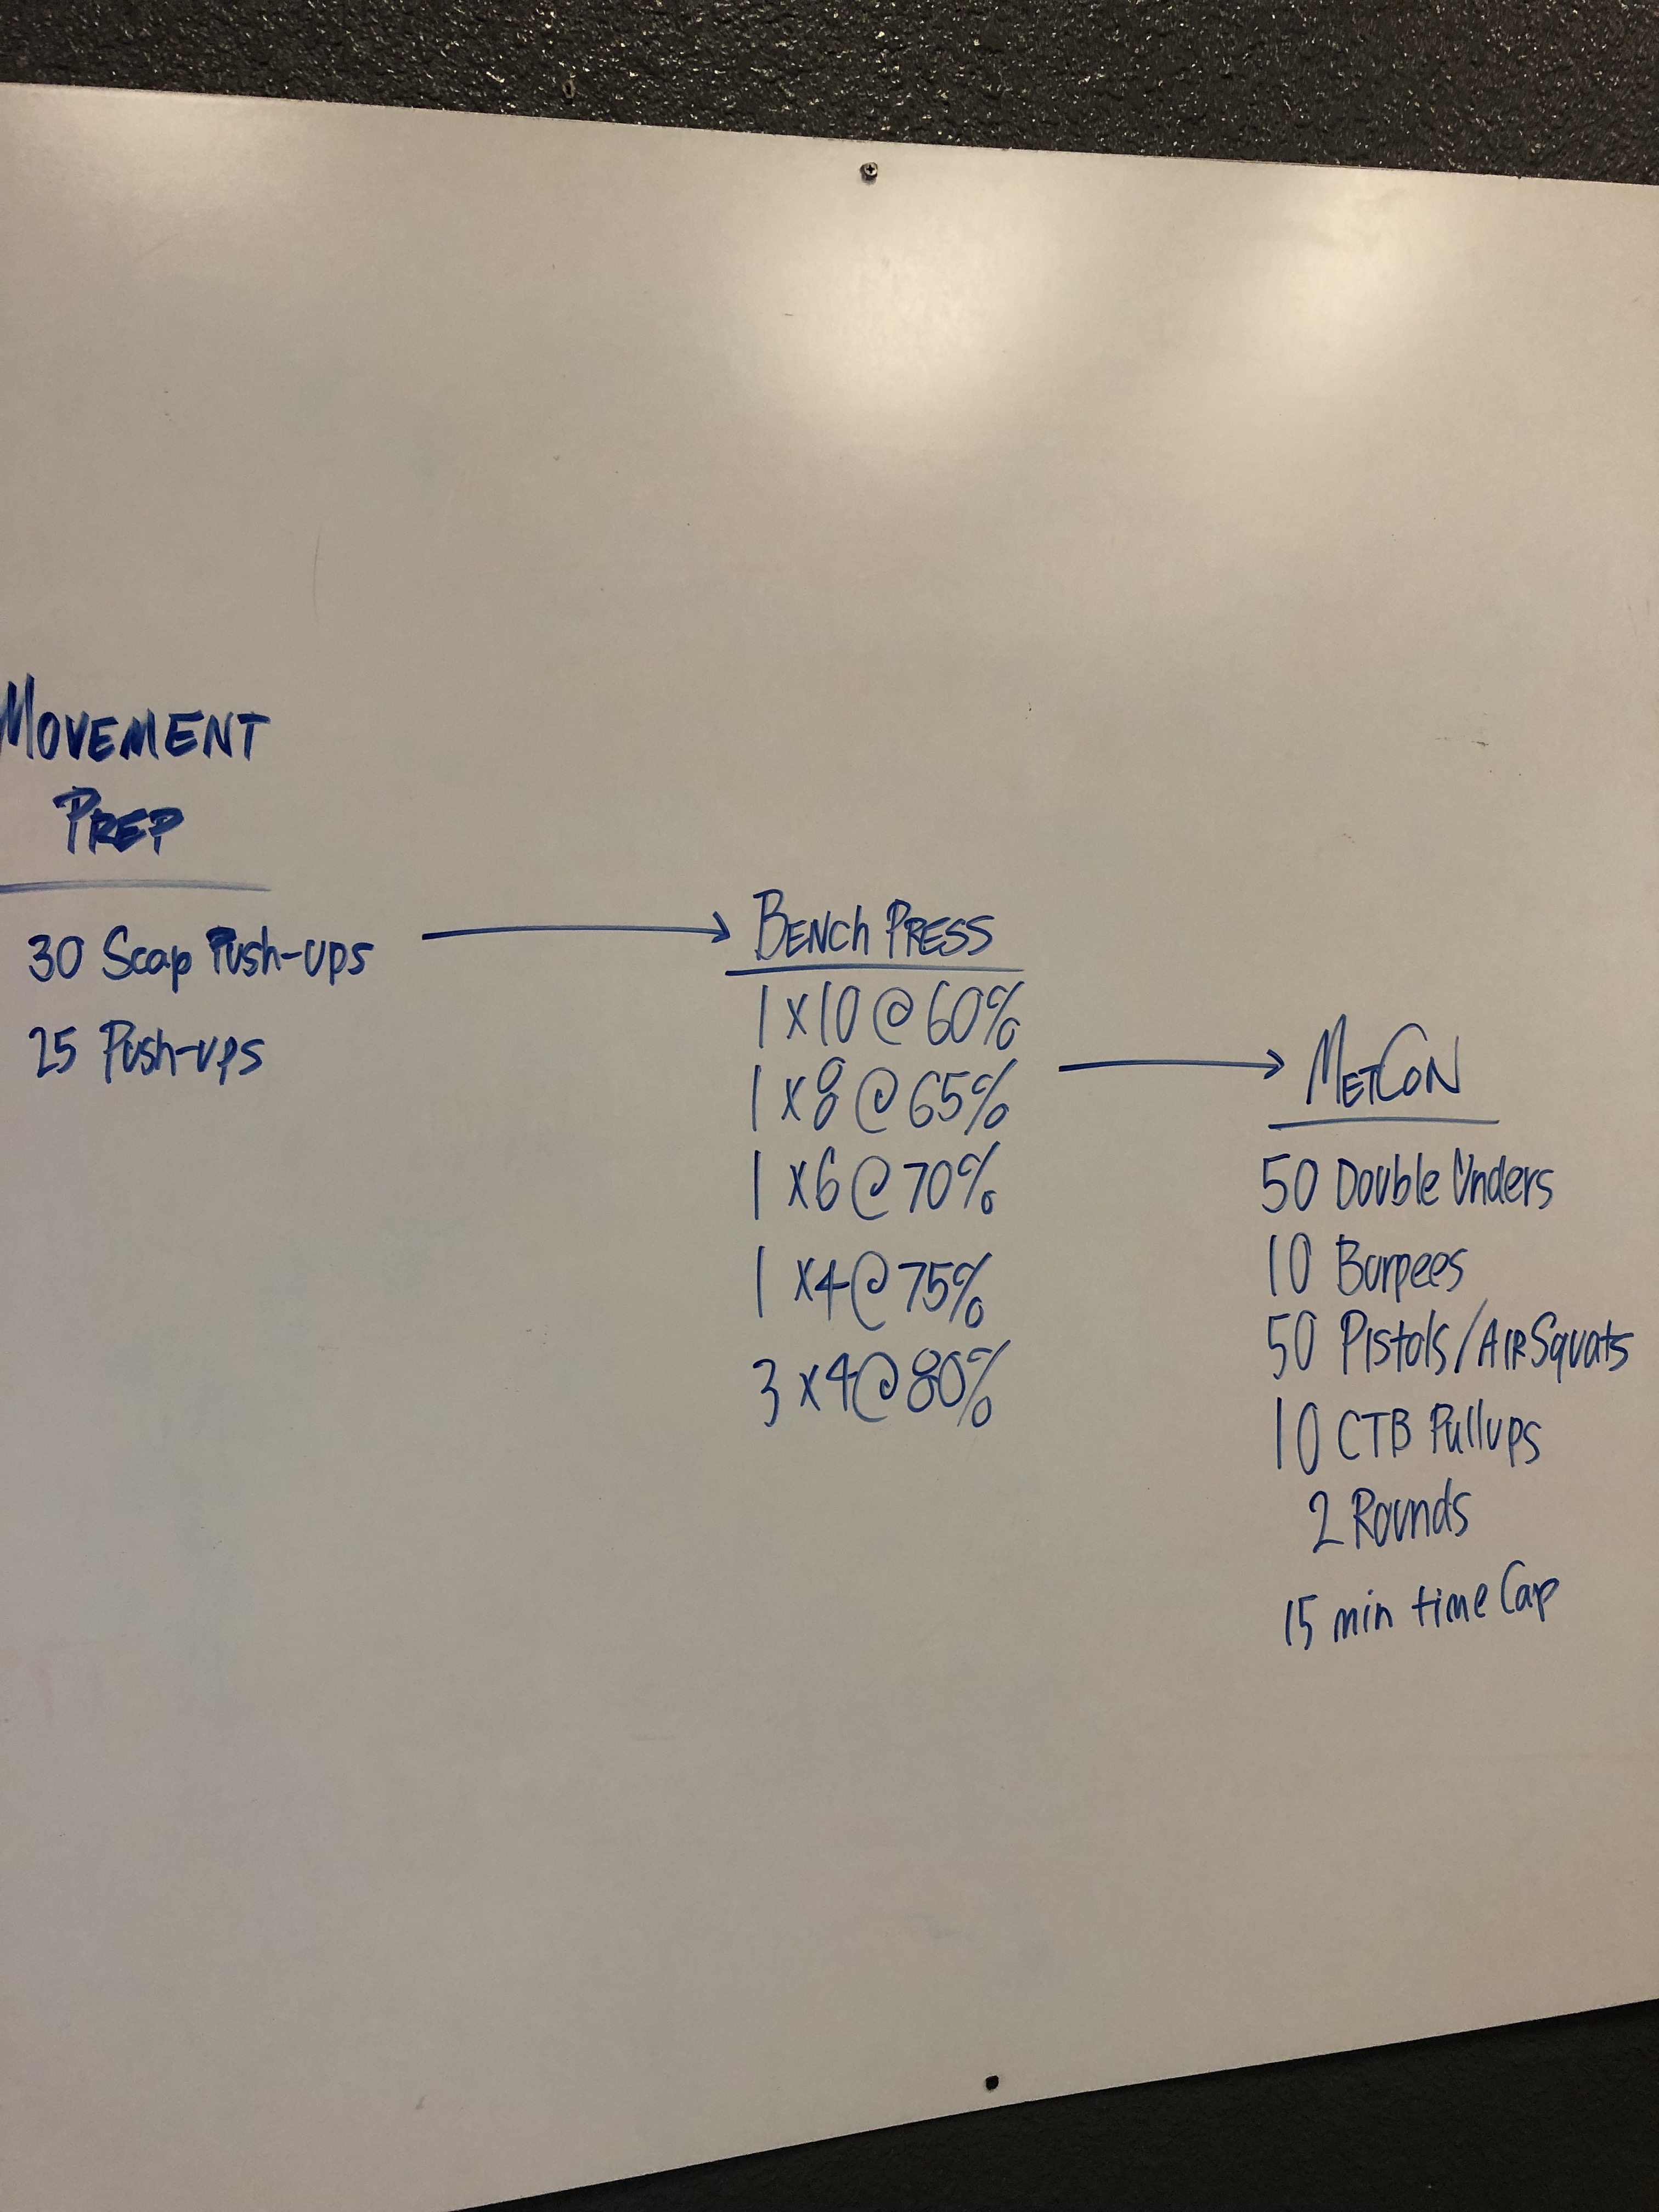 MOVEMENT
PREP
30 Scap Push-ups
25 Push-ups
BENCh PRESS
1 x 10 @ 60%
1 x 8 @ 65%
1 x 6 @ 70%
1 x 4 @ 75%
3 x 4 @ 80%
METCON
50 Double Unders
10 Burpees
50 Pistols/AIR Squats
10 CTB Pullups
2 Rounds
15 min time Cap